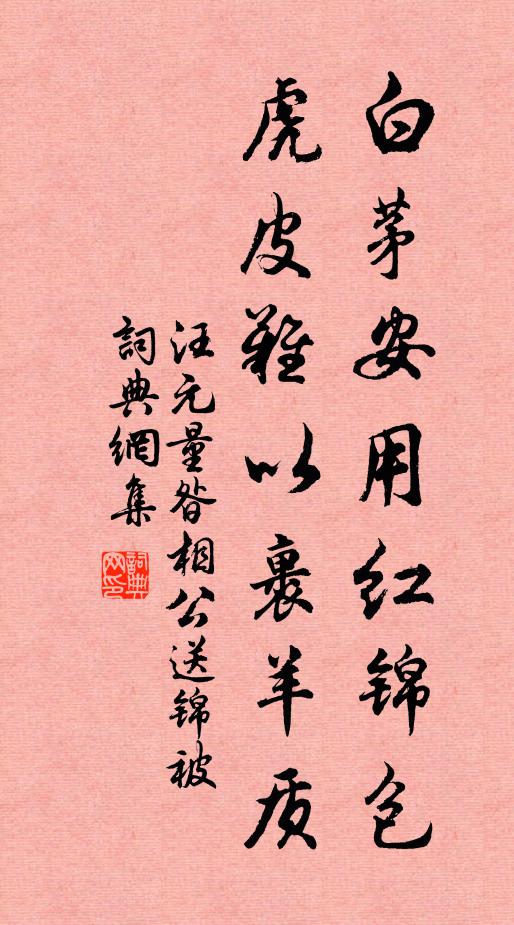 白茅安用红锦包
虎皮难以裹羊质
汪元量昝相公送锦被
詞典網集
詞典网印